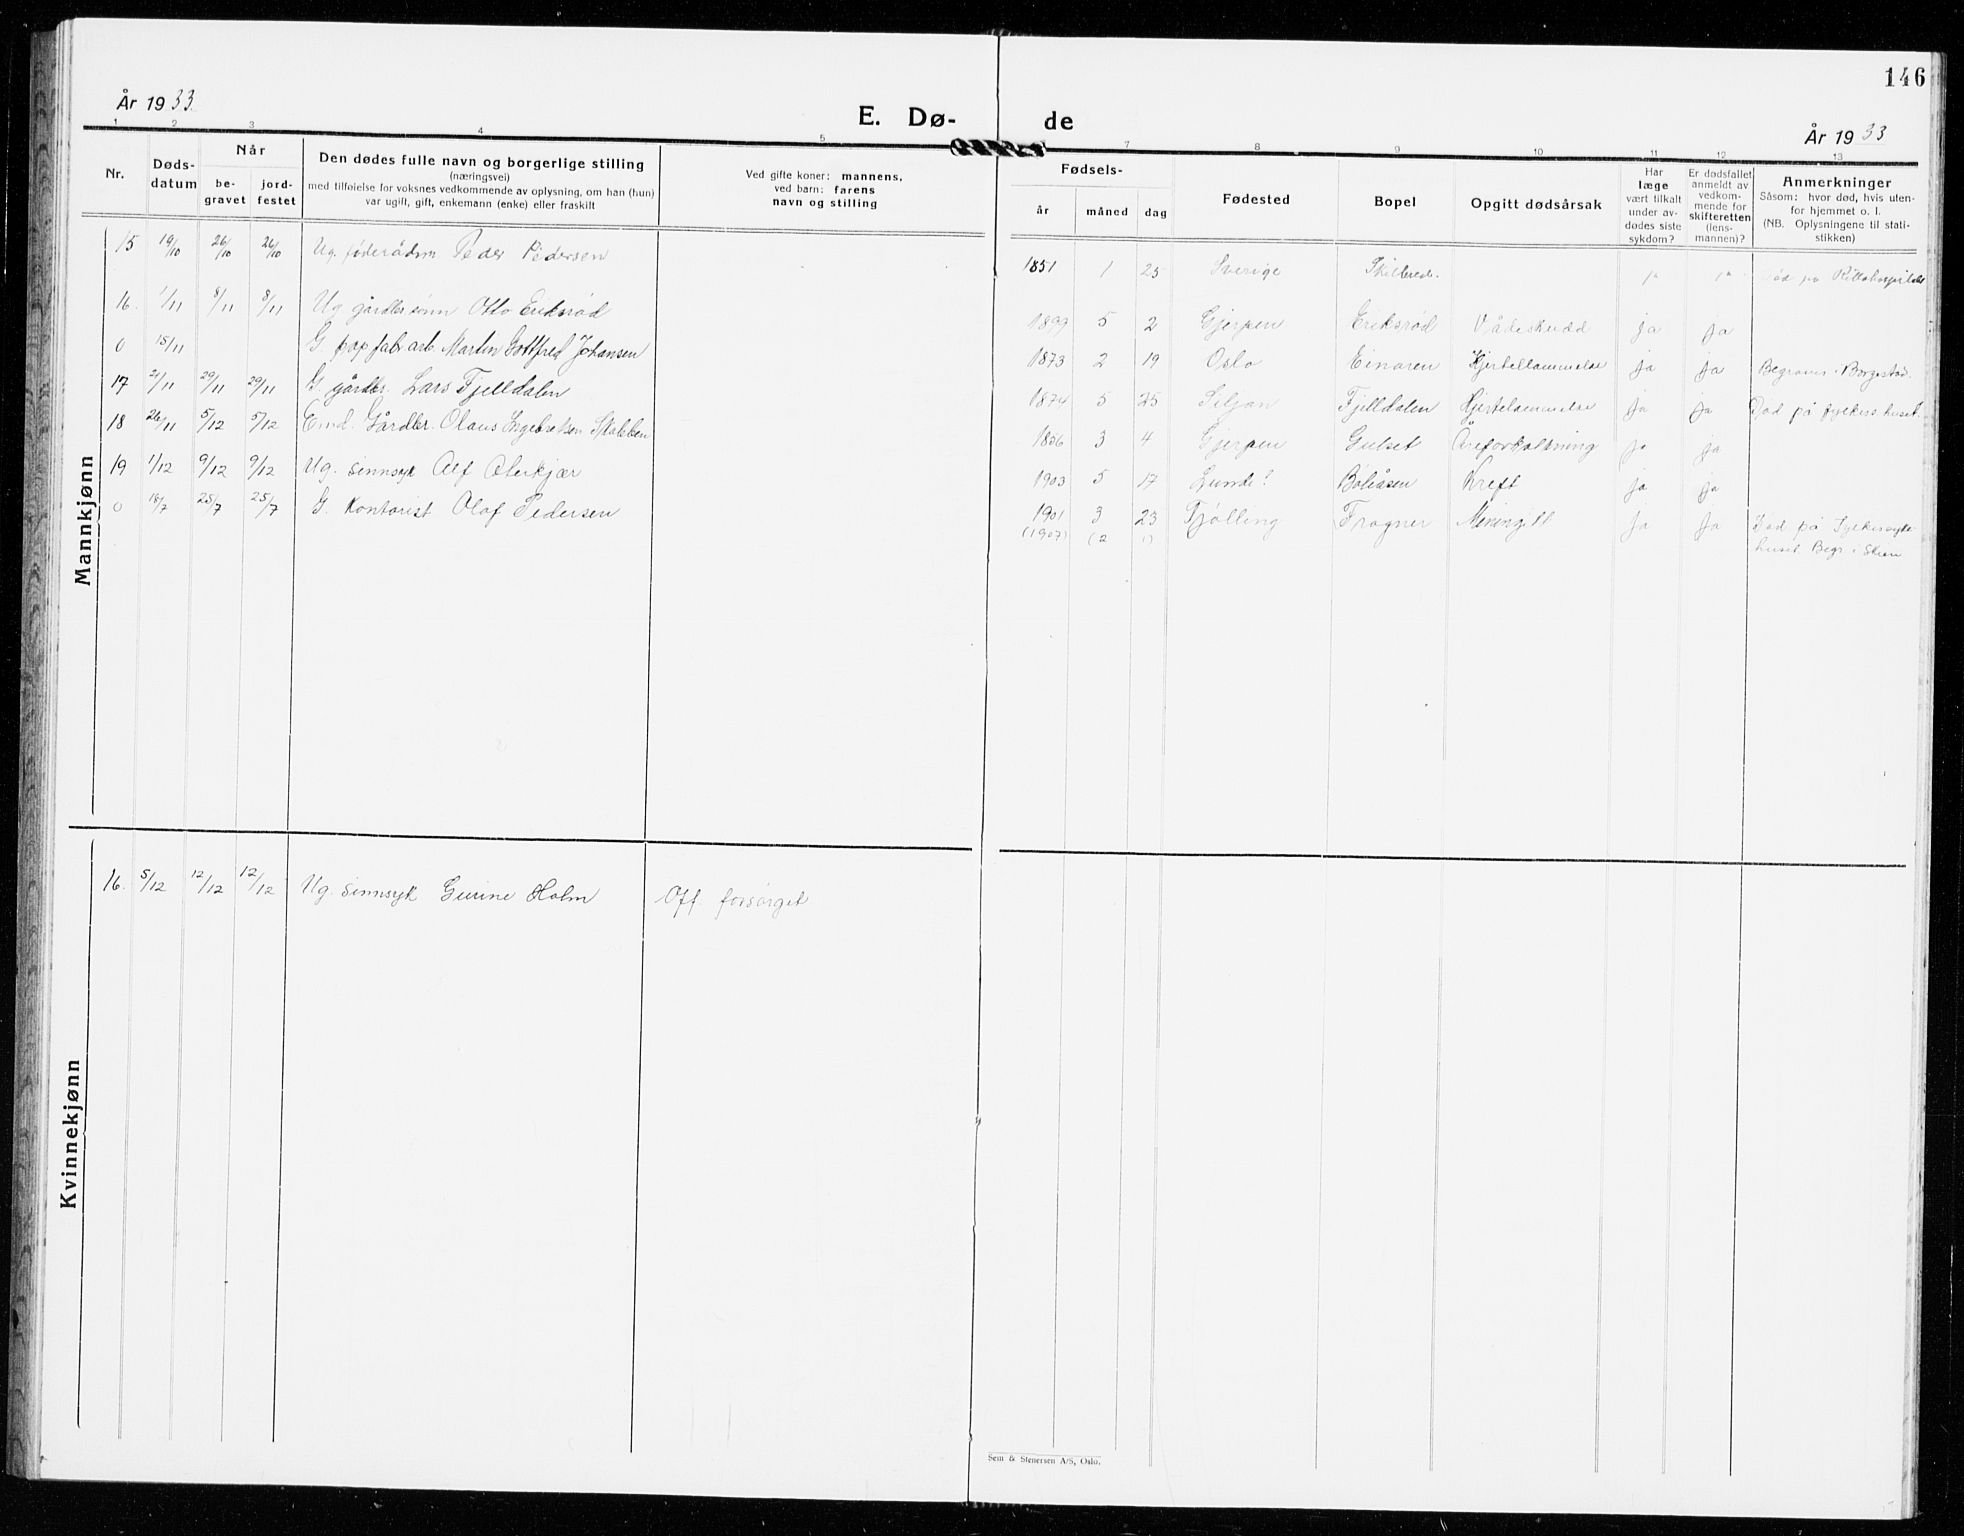 146
År 1933.
E. Dø- de
År 1933
1 2 3 4 5 7 8 9 10 11 12 13
Nr.
Døds-
datum
Når
be-
gravet
jord-
festet
Den dødes fulle navn og borgerlige stilling
(næringsvei)
med tilføielse for voksnes vedkommende av oplysning, om han (hun)
var ugift, gift, enkemann (enke) eller fraskilt
Ved gifte koner: mannens,
ved barn: farens
navn og stilling
Fødsels-
år måned dag
Fødested
Bopel
Opgitt dødsårsak
Har
læge
vært tilkalt
under av-
dødes siste
sykdom?
Er dødsfallet
anmeldt av
vedkom-
mende for
skifteretten
(lens-
mannen)?
Anmerkninger
Såsom: hvor død, hvis uten-
for hjemmet o. l.
(NB. Oplysningene til stati-
stikken)
Mannkjønn
15 19/10 26/10 26/10 Ug. føderådsm Peder Pedersen 1851 1 25 Sverige ja ja
16. 1/11 8/11 8/11 Ug gårdbr sønn Otto Eriksrød 1899 5 2 Gjerpen Eriksrød Vådeskudd ja ja
0 15/11 G. pap fabr arb. Martin Gottfred Johansen 1873 2 19 Oslo Einaren Hjertelammelse ja ja Begraves i Borgestad.
17 21/11 29/11 29/11 G. gårdbr. Lars Fjelldalen 1874 5 25 Siljan Fjelldalen Hjertelammelse ja ja Død på fylkess.huset.
18 26/11 5/12 5/12 Em. Gårdbr. Olaus Ingebretsen 3 4 Gjerpen Gulset Åreforkalkning ja ja
19 1/12 9/12 9/12 Ug. sinnsyk Alf 1903 5 17 Lunde? Bøleåsen Kreft ja ja
0 18/7 25/7 25/7 G. Kontorist Olof Pedersen 1901 3 23 Tjølling Frogner Meningitt ja ja Død på Fylkessyke-
(1907) (2 1) huset. Begr. i Skien
Kvinnekjønn
16. 5/12 12/12 12/12 Ug. sinnsyk Gurine Holm Off. forsørget
Sem & Stenersen A/S, Oslo.